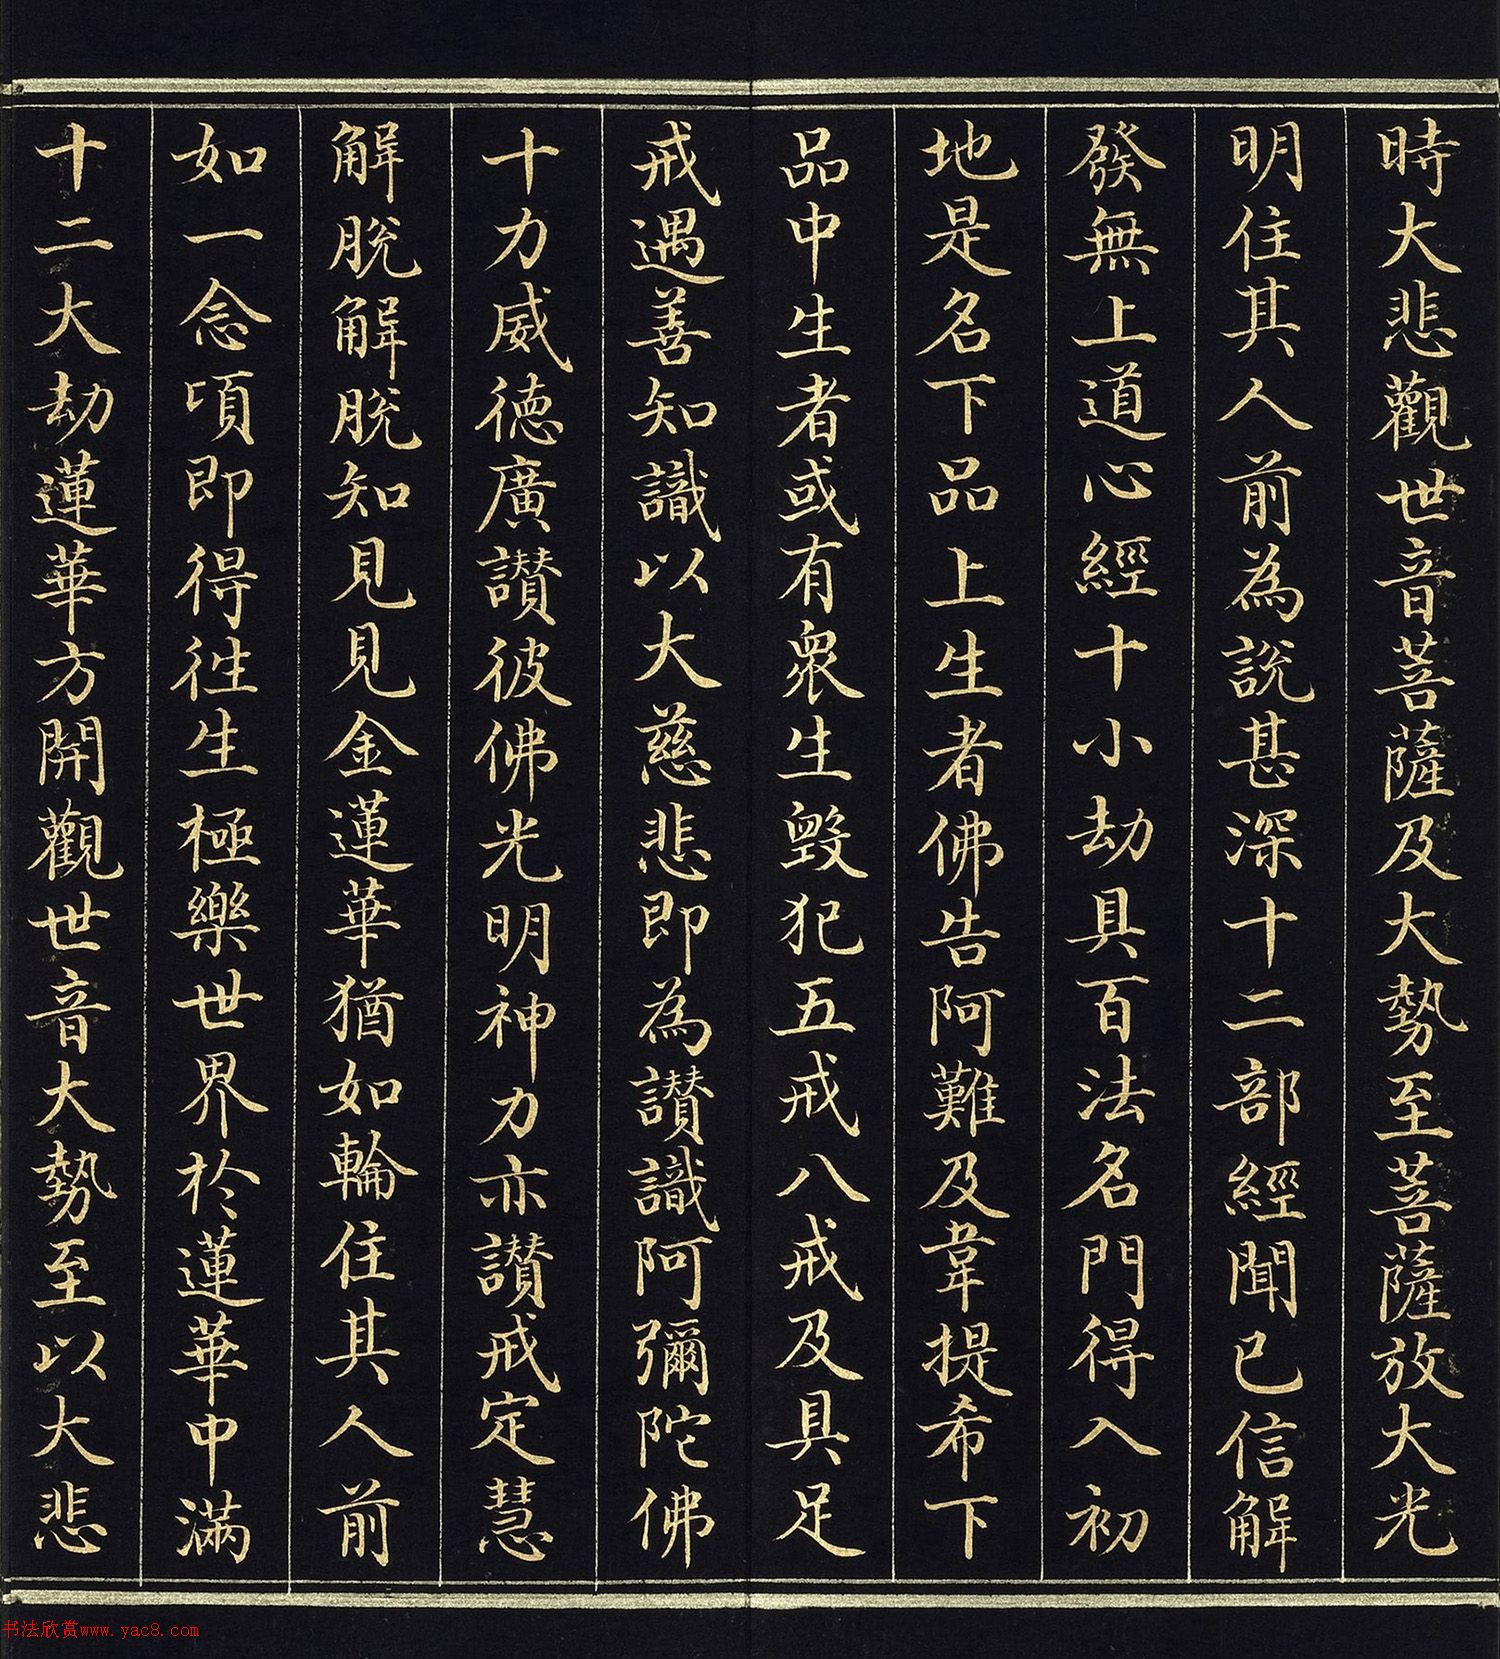 時大悲觀世音菩薩及大勢至菩薩放大光
明住其人前為說甚深十二部經聞已信解
發無上道心經十小劫具百法名門得入初
地是名下品上生者佛告阿難及韋提希下
品中生者或有眾生毀犯五戒八戒及具足
戒遇善知識以大慈悲即為讚識阿彌陀佛
十力威德廣讚彼佛光明神力亦讚戒定慧
解脫解脫知見見金蓮華猶如輪住其人前
如一念頃即得往生極樂世界於蓮華中滿
十二大劫蓮華方開觀世音大勢至以大悲
书法欣赏www.yac8.com